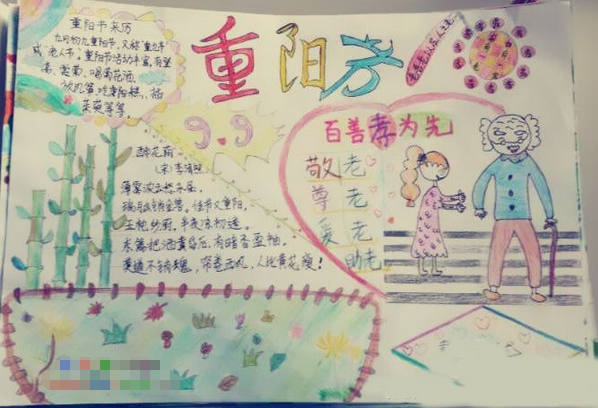 重阳节
重阳节来历
九月初九重阳节,又称"重九节"
或"老人节。重阳节活动丰富,有登
高、赏菊、喝菊花酒、
放风筝、吃重阳糕、插
茱萸等等。
9.9
醉花阴
(宋)李清照
薄雾浓云愁永昼,
瑞脑销金兽。佳节又重阳,
玉枕纱厨,半夜凉初透。
东篱把酒黄昏后,有暗香盈袖。
莫道不销魂,帘卷西风,人比黄花瘦!
百善孝为先
敬老
尊老
爱老
助老